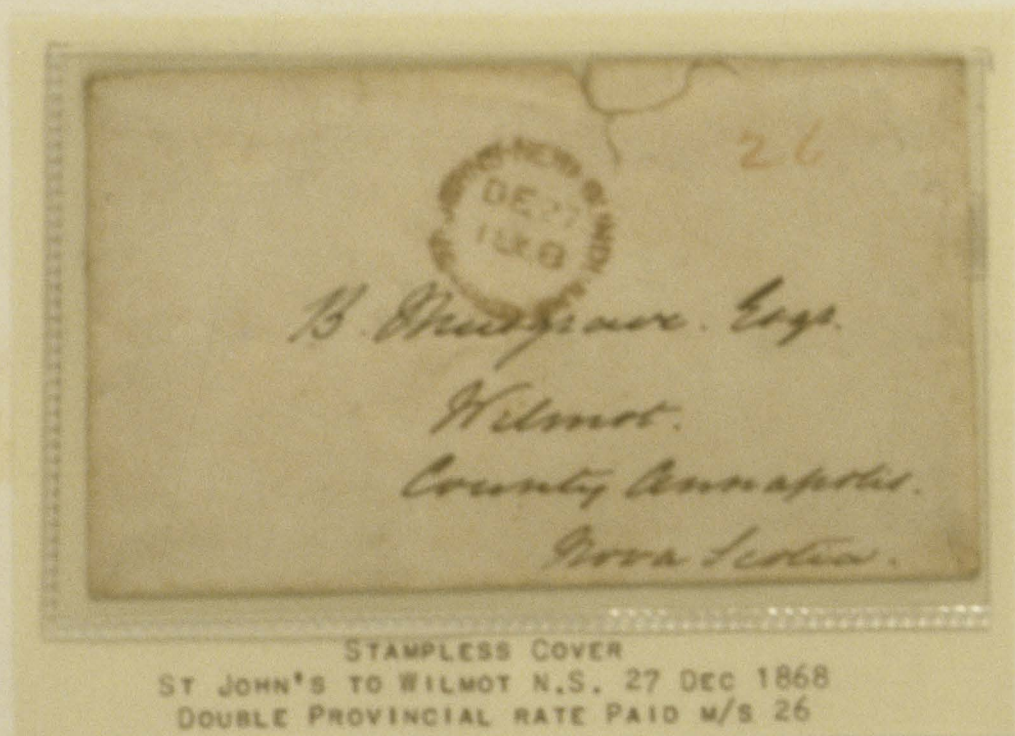 26
ST JOHN'S NEWFOUNDLAND
DE 27
1868
B. Musgrave. Esqr.
Wilmot.
County Annapolis.
Nova Scotia.
STAMPLESS COVER
ST JOHN'S TO WILMOT N.S. 27 DEC 1868
DOUBLE PROVINCIAL RATE PAID M/S 26